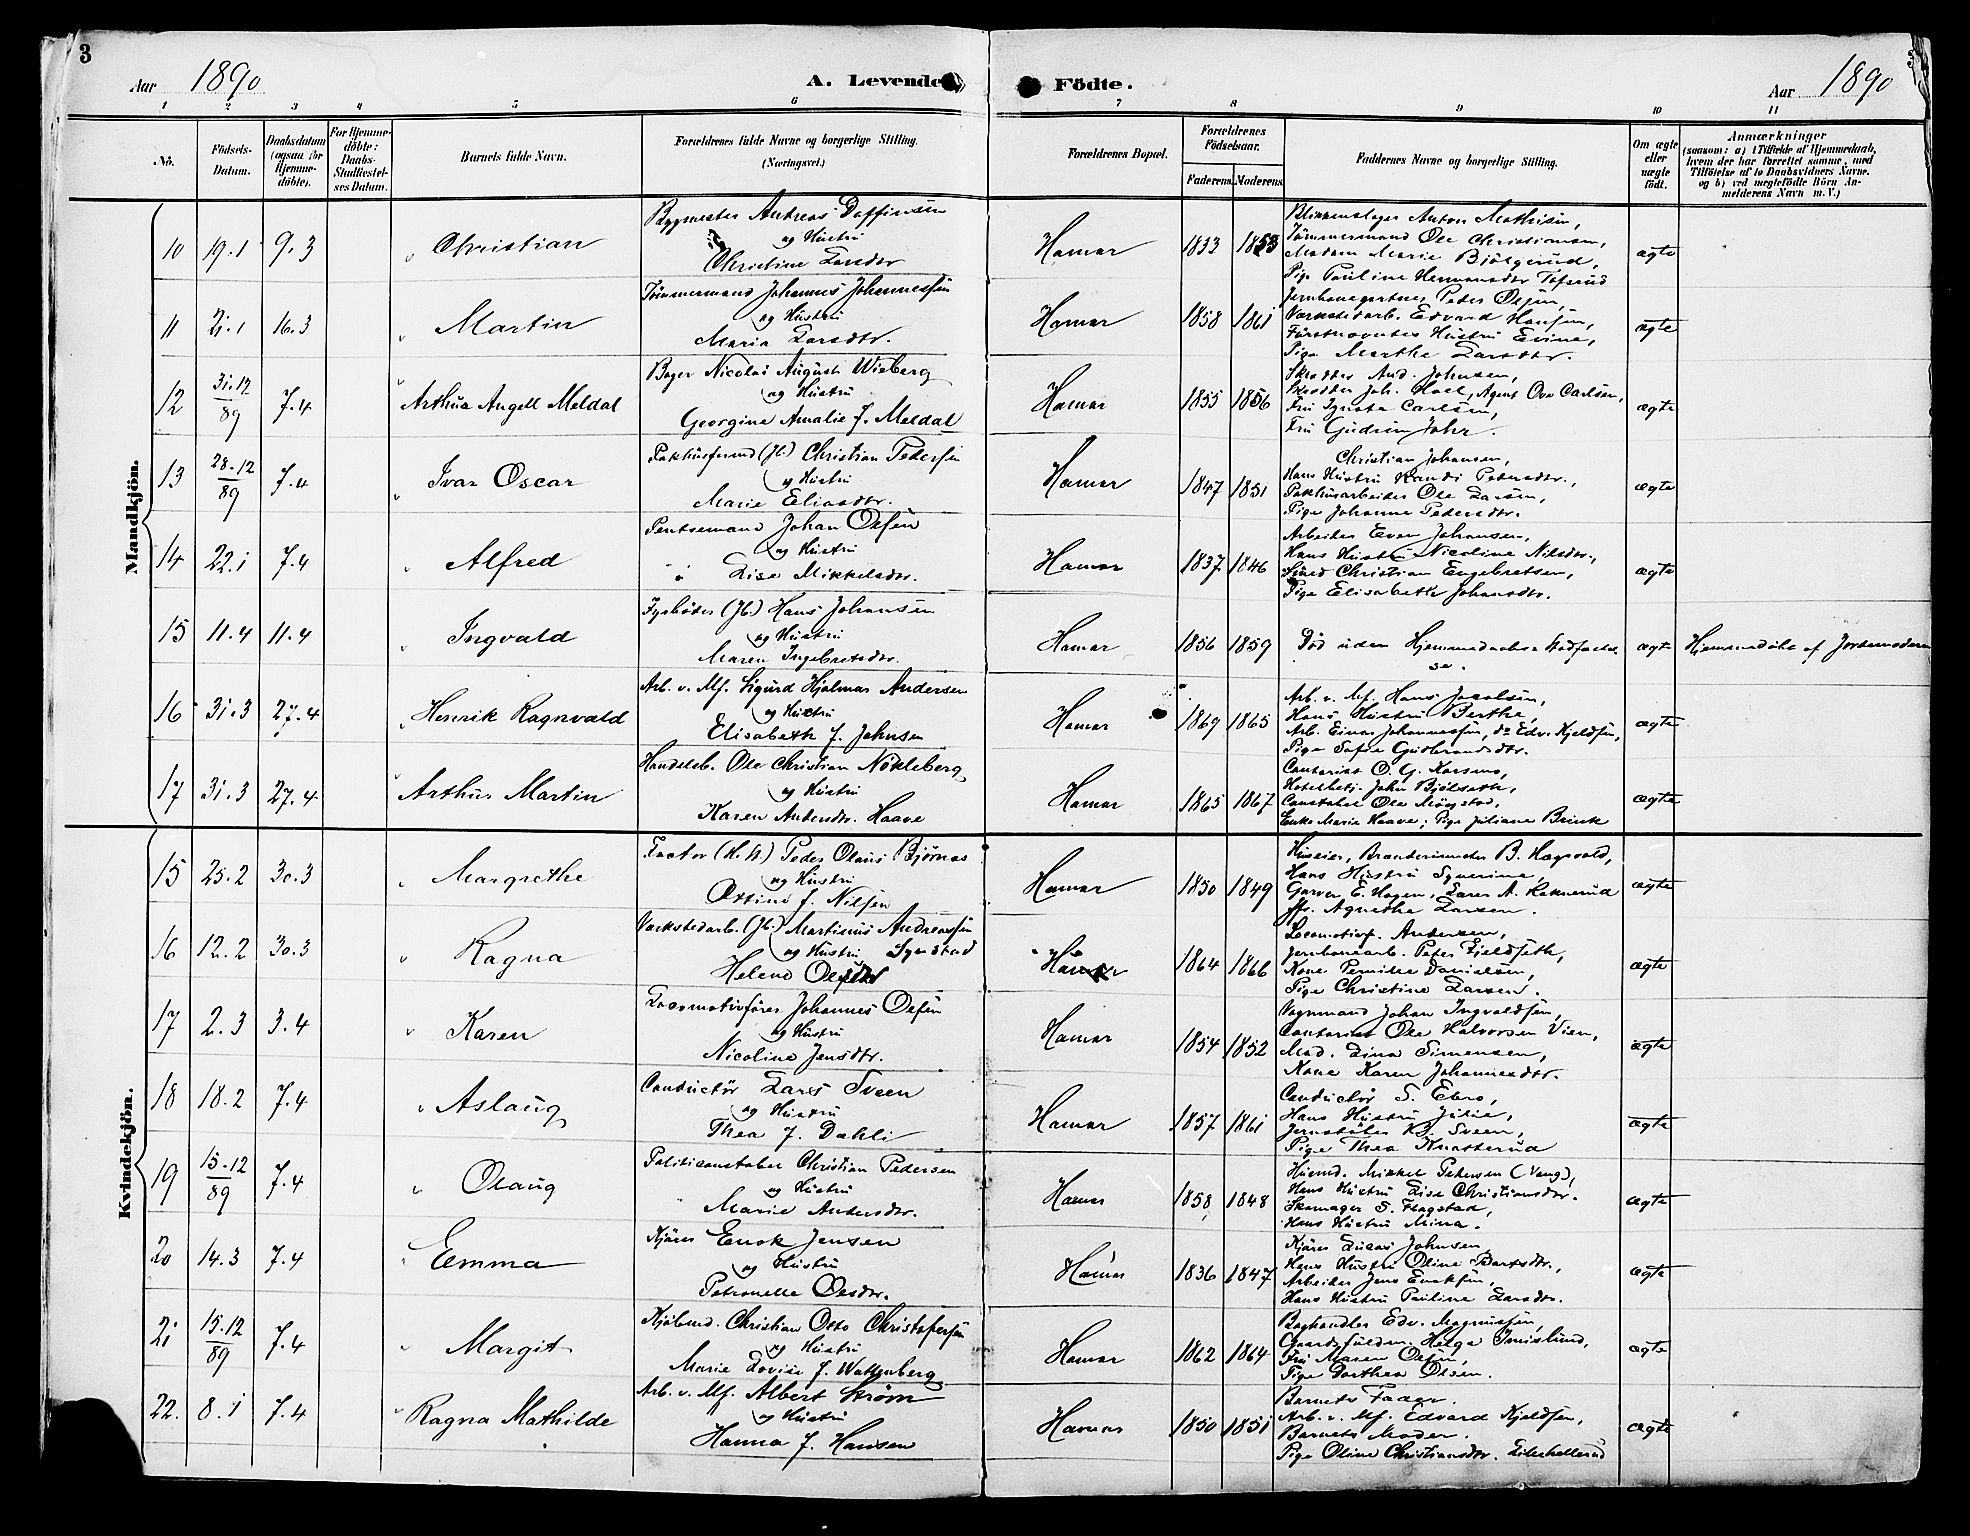 3
Aar 1890
A. Levende
Födte.
Aar 1890
1 2 3 4 5 6 7 8 9 10 11
No.
Födsels-Datum.
Daabsdatum (ogsaa for Hjemme-döbte).
For Hjemme-döbte: Daabs-Stadfæstel-ses Datum.
Barnets fulde Navn.
Forældrenes fulde Navne og borgerlige Stilling. (Næringsvei.)
Forældrenes Bopæl.
Forældrenes Födselsaar.
Faderens. Moderens.
Faddernes Navne og borgerlige Stilling.
Om ægte eller uægte födt.
Anmærkninger
(saasom: a) i Tilfælde af Hjemmedaab, hvem der har forrettet samme, med Tilföielse af to Daabsvidners Navne. og b) ved uægtefödte Börn An-melderens Navn m. V.)
Mandkjön.
10 19.1 9.3 Christian
Bygmester Andreas Daffinsen
og Hustru
Christine Larsdtr
Hamar 1833 1853
Blikkenslager Anton Mathisen,
Tömmermand Ole Christiansen,
Madam Marie Bjölgerud,
Pige Pauline Hermansdtr Tofsrud
ægte
11 21.1 16.3 Martin
Tömmermand Johannes Johannessen
og Hustru
Maria Larsdtr.
Hamar 1858 1861
Jernbanegartner Peder Olsen,
Værkstedarb. Edvard Hansen,
Hustru Evine,
Pige Marthe Larsdtr.
ægte
12 31.12/89 7.4 Arthur Angell Meldal
Bager Nicolai August Wieberg
og Hustru
Georgine Amalie f. Meldal
Hamar 1855 1856
Skrædder And. Johnsen,
Skrædder Joh. Hoel, Agent Ove Carlsen,
Fru Carlsen,
Fru Gudrun Johr.
ægte
13 28.12/89 7.4 Ivar Oscar
Pakhusformd (Jb.) Christian Pedersen
og Hustru
Marie Eliasdtr.
Hamar 1847 1851
Christian Johansen,
Hans Hustru Randi Pedersdtr.,
Pakhusarbeider Ole Larsen,
Pige Johanne Pedersdtr.
ægte
14 22.1 7.4 Alfred
Pentsemand Johan Olsen
og Hustru
Lise Mikkelsdtr.
Hamar 1837 1846
Arbeider Even Johansen,
Hans Hustru Nicoline Nilsdtr.,
Christian Engebretsen,
Pige Elisabeth Johansdtr.
ægte
15 11.4 11.4 Ingvald
Fyrböder (Jb.) Hans Johansen
og Hustru
Maren Ingebretsdtr.
Hamar 1856 1859
Död uden Hjemmedaabens Stadfæstel-
se.
ægte
Hjemmedöbt af Jordemoderen
16 31.3 27.4 Henrik Ragnvald
Arb. v. Mf. Sigurd Hjalmar Andersen
og Hustru
Elisabeth f. Johnsen
Hamar 1869 1865
Arb. v. Mf. Hans Jacobsen,
Hans Hustru Berthe,
Arb. Einar Johannessen, do Edv. Kjeldsen,
Pige Sofie Gudbrandsdtr.
ægte
17 31.3 27.4 Arthur Martin
Handelsb. Ole Christian Nökleberg
og Hustru
Karen Antonsdtr. Haave
Hamar 1865 1867
Contorist O. G. Karsmo,
Hotelbetj. John Bjölseth,
Constabel Ole Mörstad,
Enke Marie Haave; Pige Juliane Brink
ægte
Kvindekjön.
15 25.2 30.3 Margrethe
Factor (H.St.) Peder Olaus Bjørnås
og Hustru
Ossine f. Nilsen
Hamar 1850 1849
Huseier, Brandmester B. Hagsvold,
Hans Hustru Synerine,
Garver E. Hagen, Lars A. Raknerud
Jfr. Agnethe Larsen.
ægte
16 12.2 30.3 Ragna
Værkstedarb. (Jb.) Martinus Andreassen
og Hustru Syndstad
Helene Olsdtr
Hamar 1864 1866
Locomotivf. Andersen,
Jernbanearb. Peter Fjeldseth,
Kone Pernille Danielsen,
Pige Christine Larsen.
ægte
17 2.3 3.4 Karen
Locomotivförer Johannes Olsen
og Hustru
Nicoline Jensdtr.
Hamar 1854 1852
Vognmand Johan Ingvaldsen,
Contorist Ole Halvorsen Vien,
Mad. Lina Simensen,
Kone Karen Johannesdtr.
ægte
18 18.2 7.4 Aslaug
Conductör Lars Sveen
og Hustru
Thea f. Dahli
Hamar 1857 1861
Conductör S. Ebro,
Hans Hustru Julie,
Jernstöber Sveen,
Pige Thea Knatterud
ægte
19 15.12/89 7.4 Olaug
Politiconstabel Christian Pedersen
og Hustru
Marie Andersdtr.
Hamar 1858 1848
Husmd. Mikkel Pedersen (Vang),
Hans Hustru Lise Christiansdtr.
Skomager S. Flagstad,
Hans Hustru Mina.
ægte
20 14.3 7.4 Emma
Kjörer Enok Jensen
og Hustru
Petronelle Olsdtr.
Hamar 1836 1847
Kjörer Lucas Johnsen
Hans Hustru Oline Bertsdtr.,
Arbeider Jens Enoksen,
Hans Hustru Pauline Larsdtr.
ægte
21 15.12/89 7.4 Margit
Kjöbmd. Christian Otto Christofersen
og Hustru
Marie Lovise f. Wattenberg
Hamar 1862 1864
Boghandler Edv. Magnussen,
Helge Imislund,
Fru Maren Olsen,
Pige Dorthea Olsen.
ægte
22. 8.1 7.4 Ragna Mathilde
Arb. v. Mf. Albert Ström
og Hustru
Hanna f. Hansen
Hamar 1850 1851
Barnets Fader.
Arb. v. Mf. Edvard Kjeldsen,
Barnets Moder.
Pige Oline Christiansdtr.
ægte